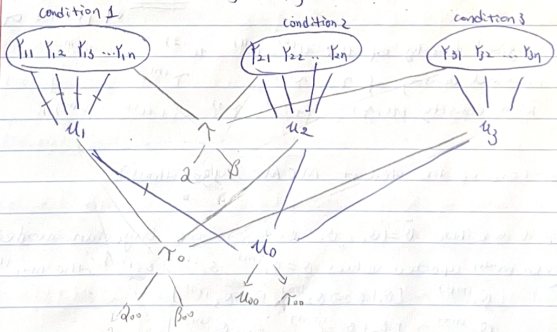 condition 1 condition 2 condition 3
Y11 Y12 Y13 ...Y1n Y21 Y22 .. Y2n Y31 Y32 ... Y3n
μ1 τ μ2 μ3
2 β
τ0 μ0
200 β00 μ00 τ00